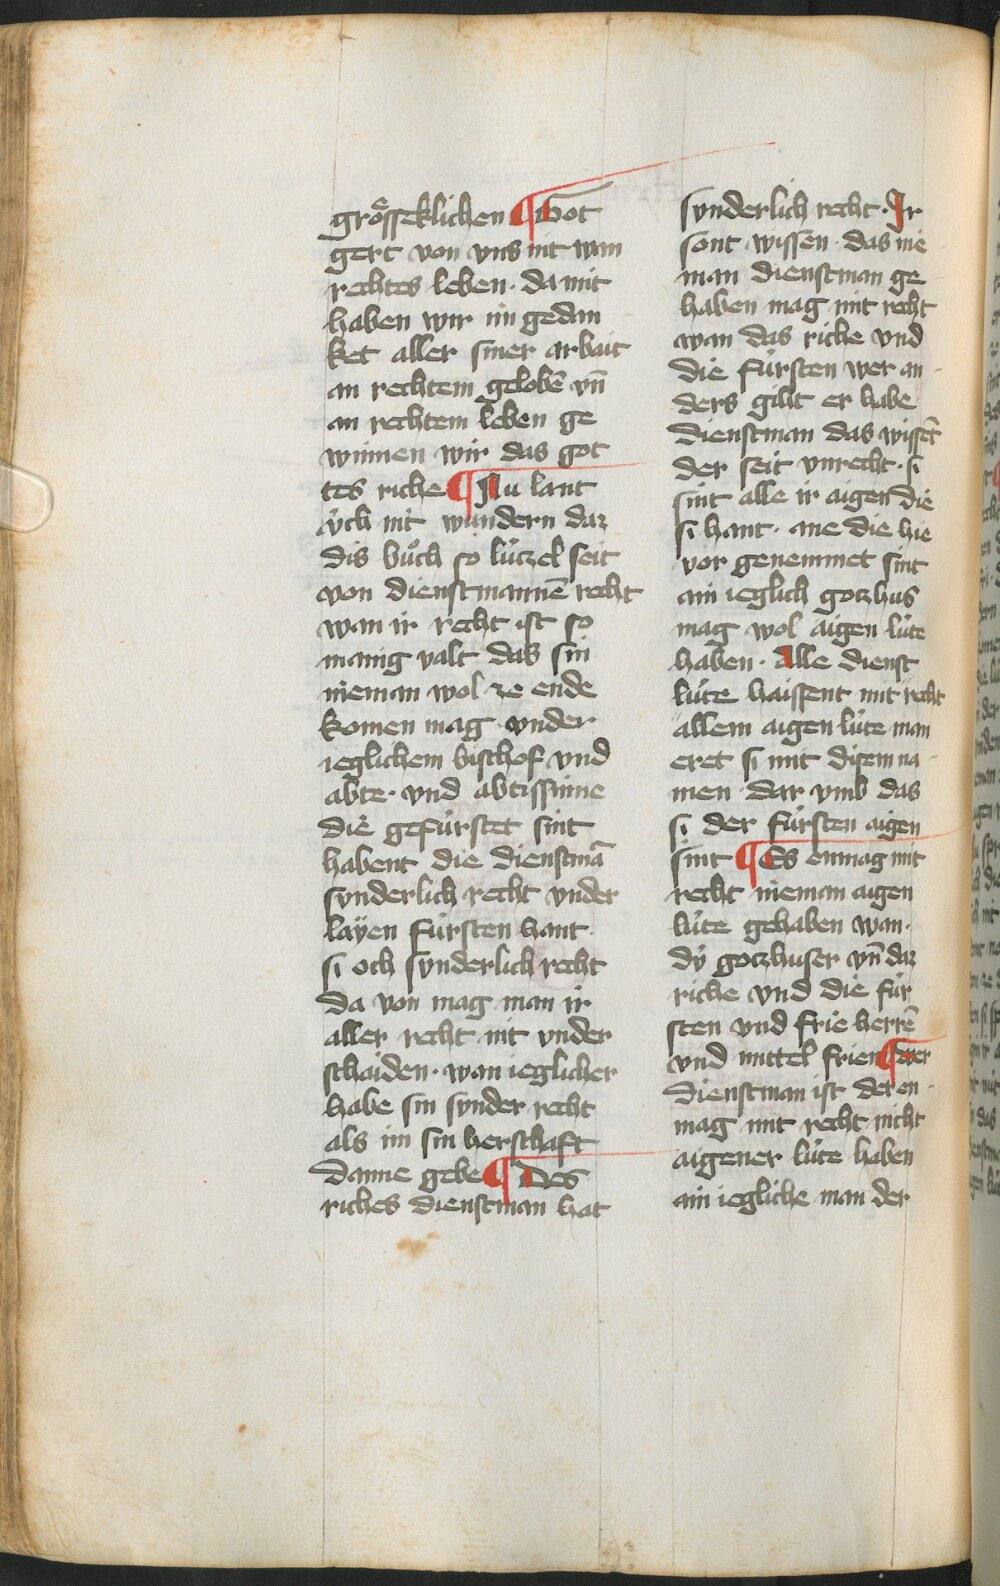 grösseklichen ¶ Got
gert von vns nit wan
rechtes leben · da mit
haben wir im gedan
ket aller siner arbait
an rechtem gelobē vn̄
an rechtem leben ge
winnen wir das got
tes riche ¶ Nu lant
v́ch nit wundern daz
dis bůch so lúczel seit
von dienstmannē recht
wan ir recht ist so
manig valt das sin
nieman wol ze ende
komen mag vnder
ieglichem bischof vnd
abte · vnd abtissinne
die gefúrstet sint
habent die dienstmā
synderlich recht vnder
layen fúrsten hant ·
si och synderlich recht
da von mag man ir
aller recht nit vnder
schaiden · wan ieglicher
habe sin synder recht
als im sin herschaft
danne gebe ¶ Des
riches dienstman hat
synderlich recht · Ir
sont wissen · das nie
man dienstman ge
haben mag mit recht
wan das riche vnd
die fúrsten wer an
ders giht er habe
dienstman das wissēt
der seit vnrecht · si
sint alle ir aigen die
si hant · ane die hie
vor genemmet sint
ain ieglich gotzhus
mag wol aigen lúte
haben · Alle dienst
lúte haissent mit recht
allem aigen lúte man
eret si mit disem na
men dar vmb das
si der fúrsten aigen
sint ¶ Es enmag mit
recht nieman aigen
lúte gehaben wan ·
dý gotzhuser vn̄ daz
riche vnd die fúr
sten vnd frie herrē
vnd mittel frien ¶ wer
dienstman ist der en
mag mit recht nicht
aigener lúte haben
ain iegliche man der